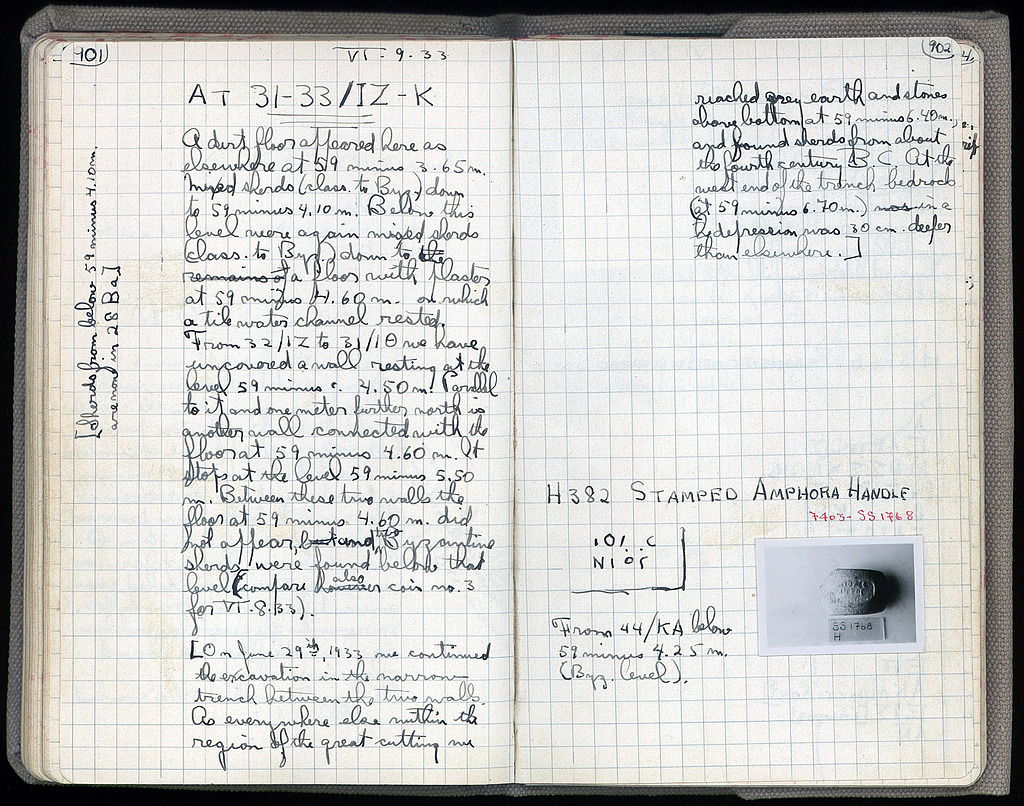 901
VI - 9 - 33
AT 31-33/IZ-K
A dirt floor appeared here as
elsewhere at 59 minus 3.65 m.
Mixed sherds (class. to Byz.) down
to 59 minus 4.10 m. Below this
level were again mixed sherds
(class. to Byz.) down to the
remains of a floor with plaster
at 59 minus 4.60 m. on which
a tile water channel rested.
From 32/IZ to 31/IΘ we have
uncovered a wall resting at the
level 59 minus c. 4.50 m. Parallel
to it and one meter further north is
another wall connected with the
floor at 59 minus 4.60 m. It
stops at the level 59 minus 5.50
m. Between these two walls the
floor at 59 minus 4.60 m. did
not appear, but and Byzantine
sherds were found below that
level (compare also coin no. 3
for VI-8-33).
[On June 29th, 1933 we continued
the excavation in the narrow
trench between the two walls.
As everywhere else within the
region of the great cutting we
[Sherds from below 59 minus 4.10 m.
are now in 28 Ba]
902
reached grey earth and stones
above bottom at 59 minus 6.40 m.,
and found sherds from about
the fourth century B.C. At the
west end of the trench bedrock
(at 59 minus 6.70 m.) was in a
depression was 30 cm. deeper
than elsewhere.]
H 382 STAMPED AMPHORA HANDLE
7403 - SS 1768
From 44/KA below
59 minus 4.25 m.
(Byz. level).
SS 1768
H